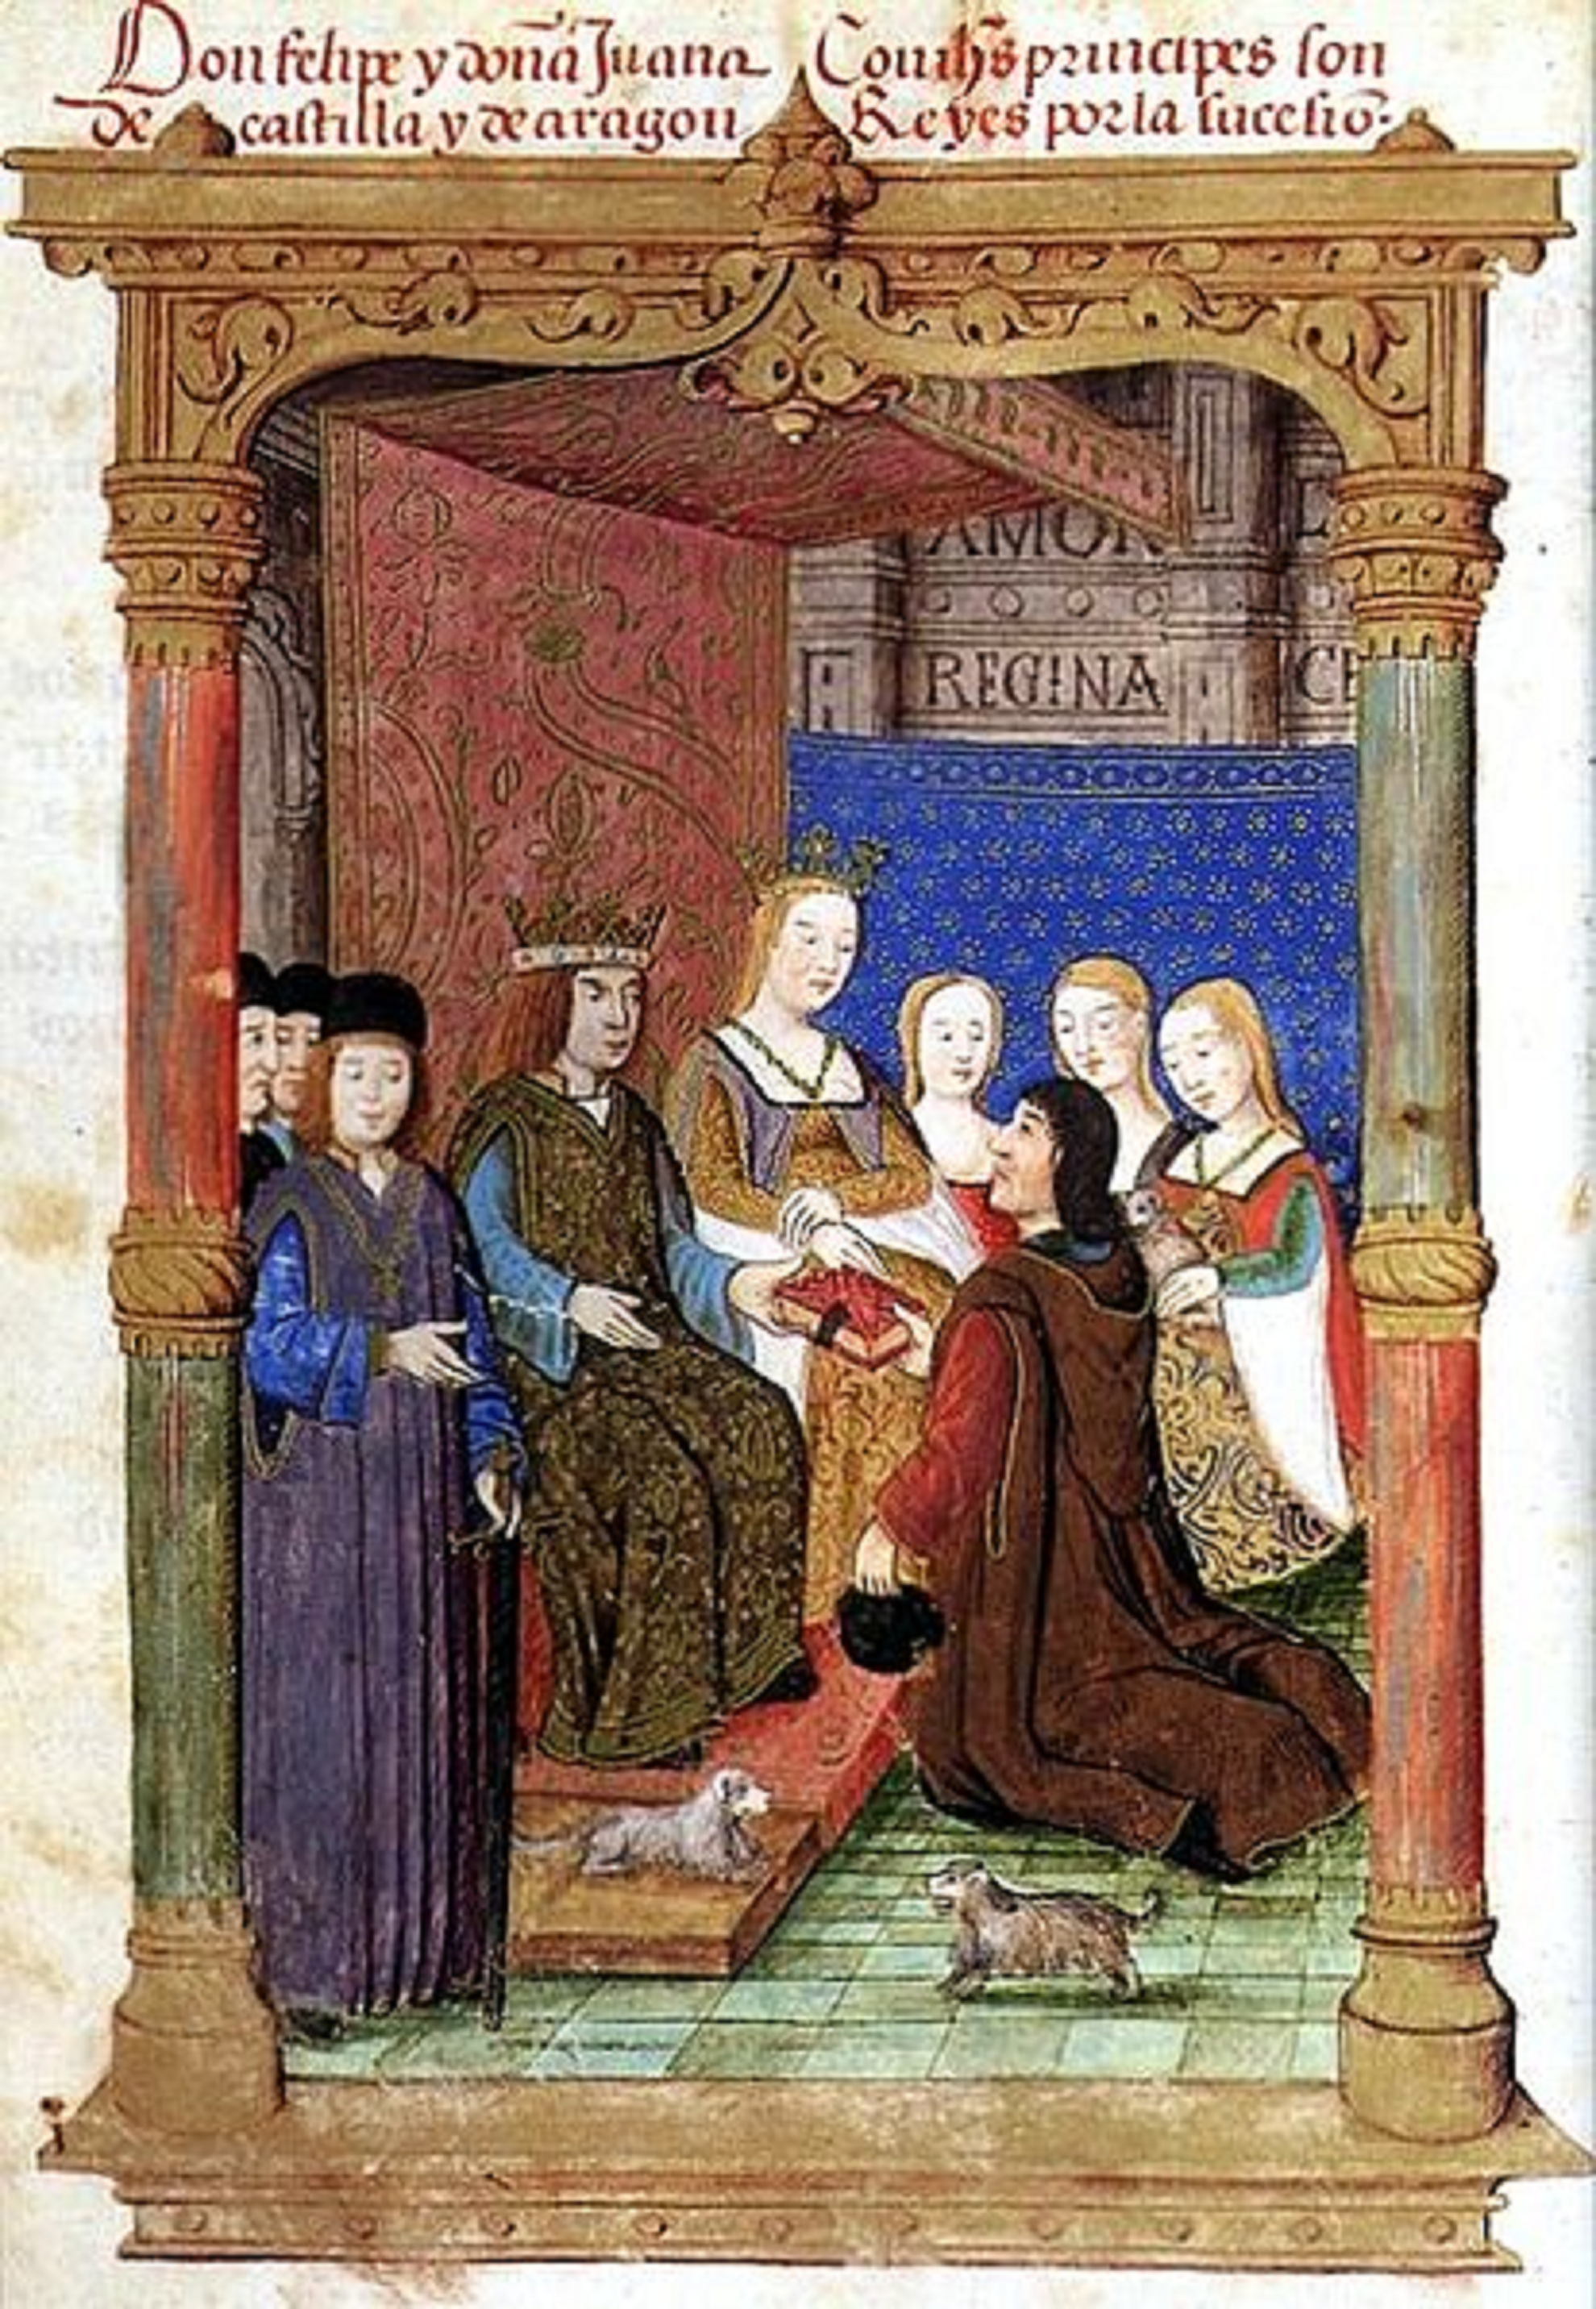 Don felipe y doña Juana
de castilla y de aragon
Reyes por la sucesiō.
principes son
AMOR
REGINA